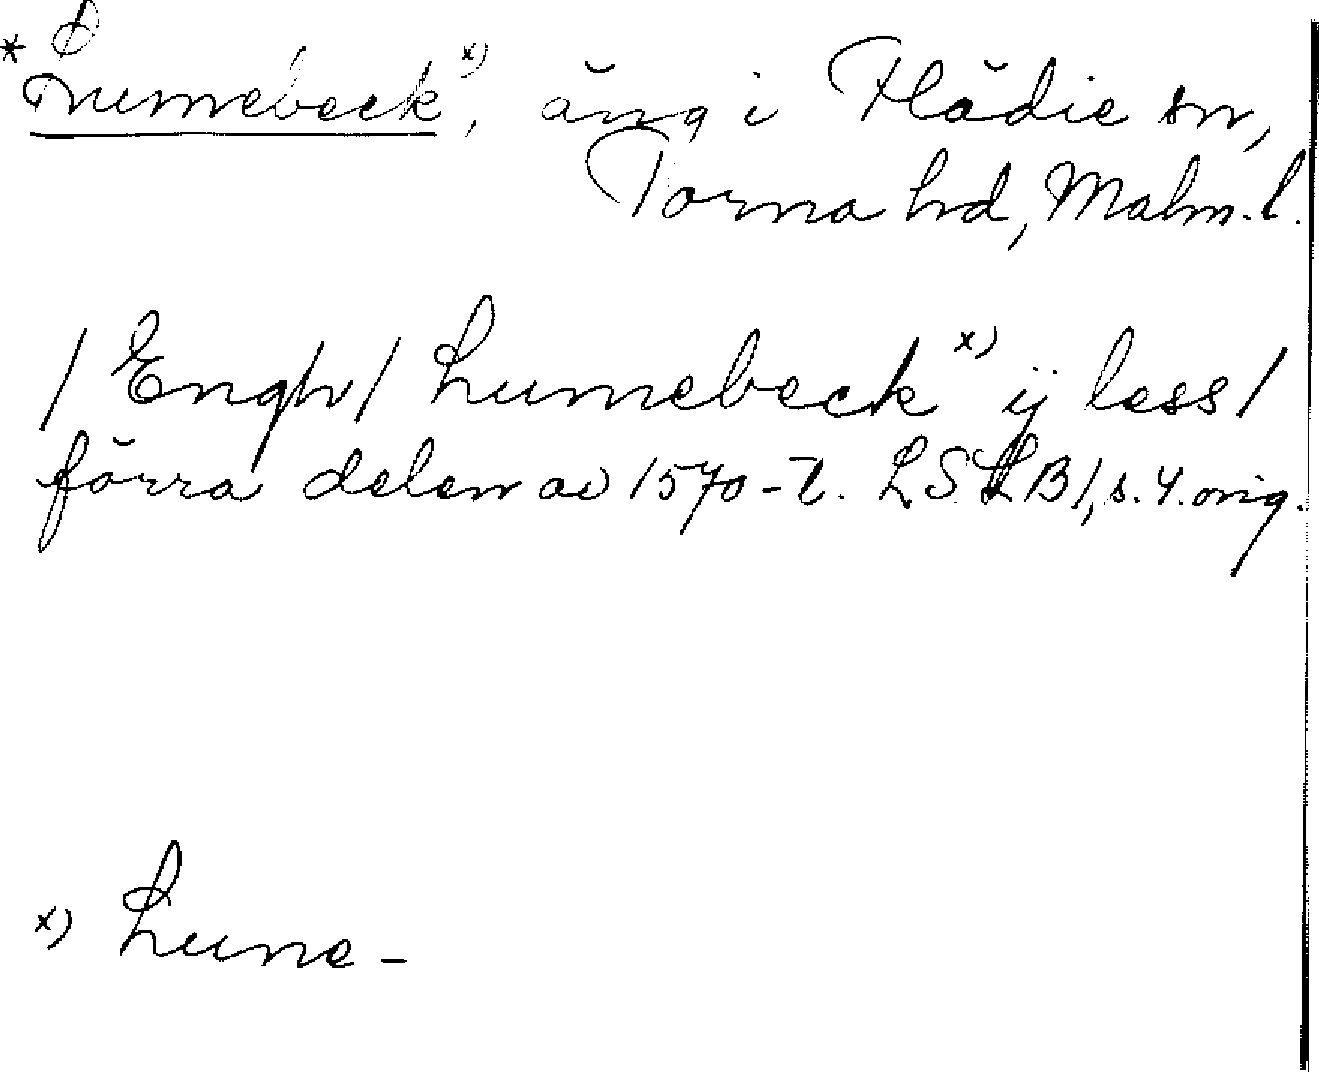 * Lumebeck x), äng i Flädie sn,
Torna hd, Malm. l.
/ Engh / Lumebeck x) ij less /
förra delen av 1570-t. LSLB1, s. 4. orig.
x) Lune -